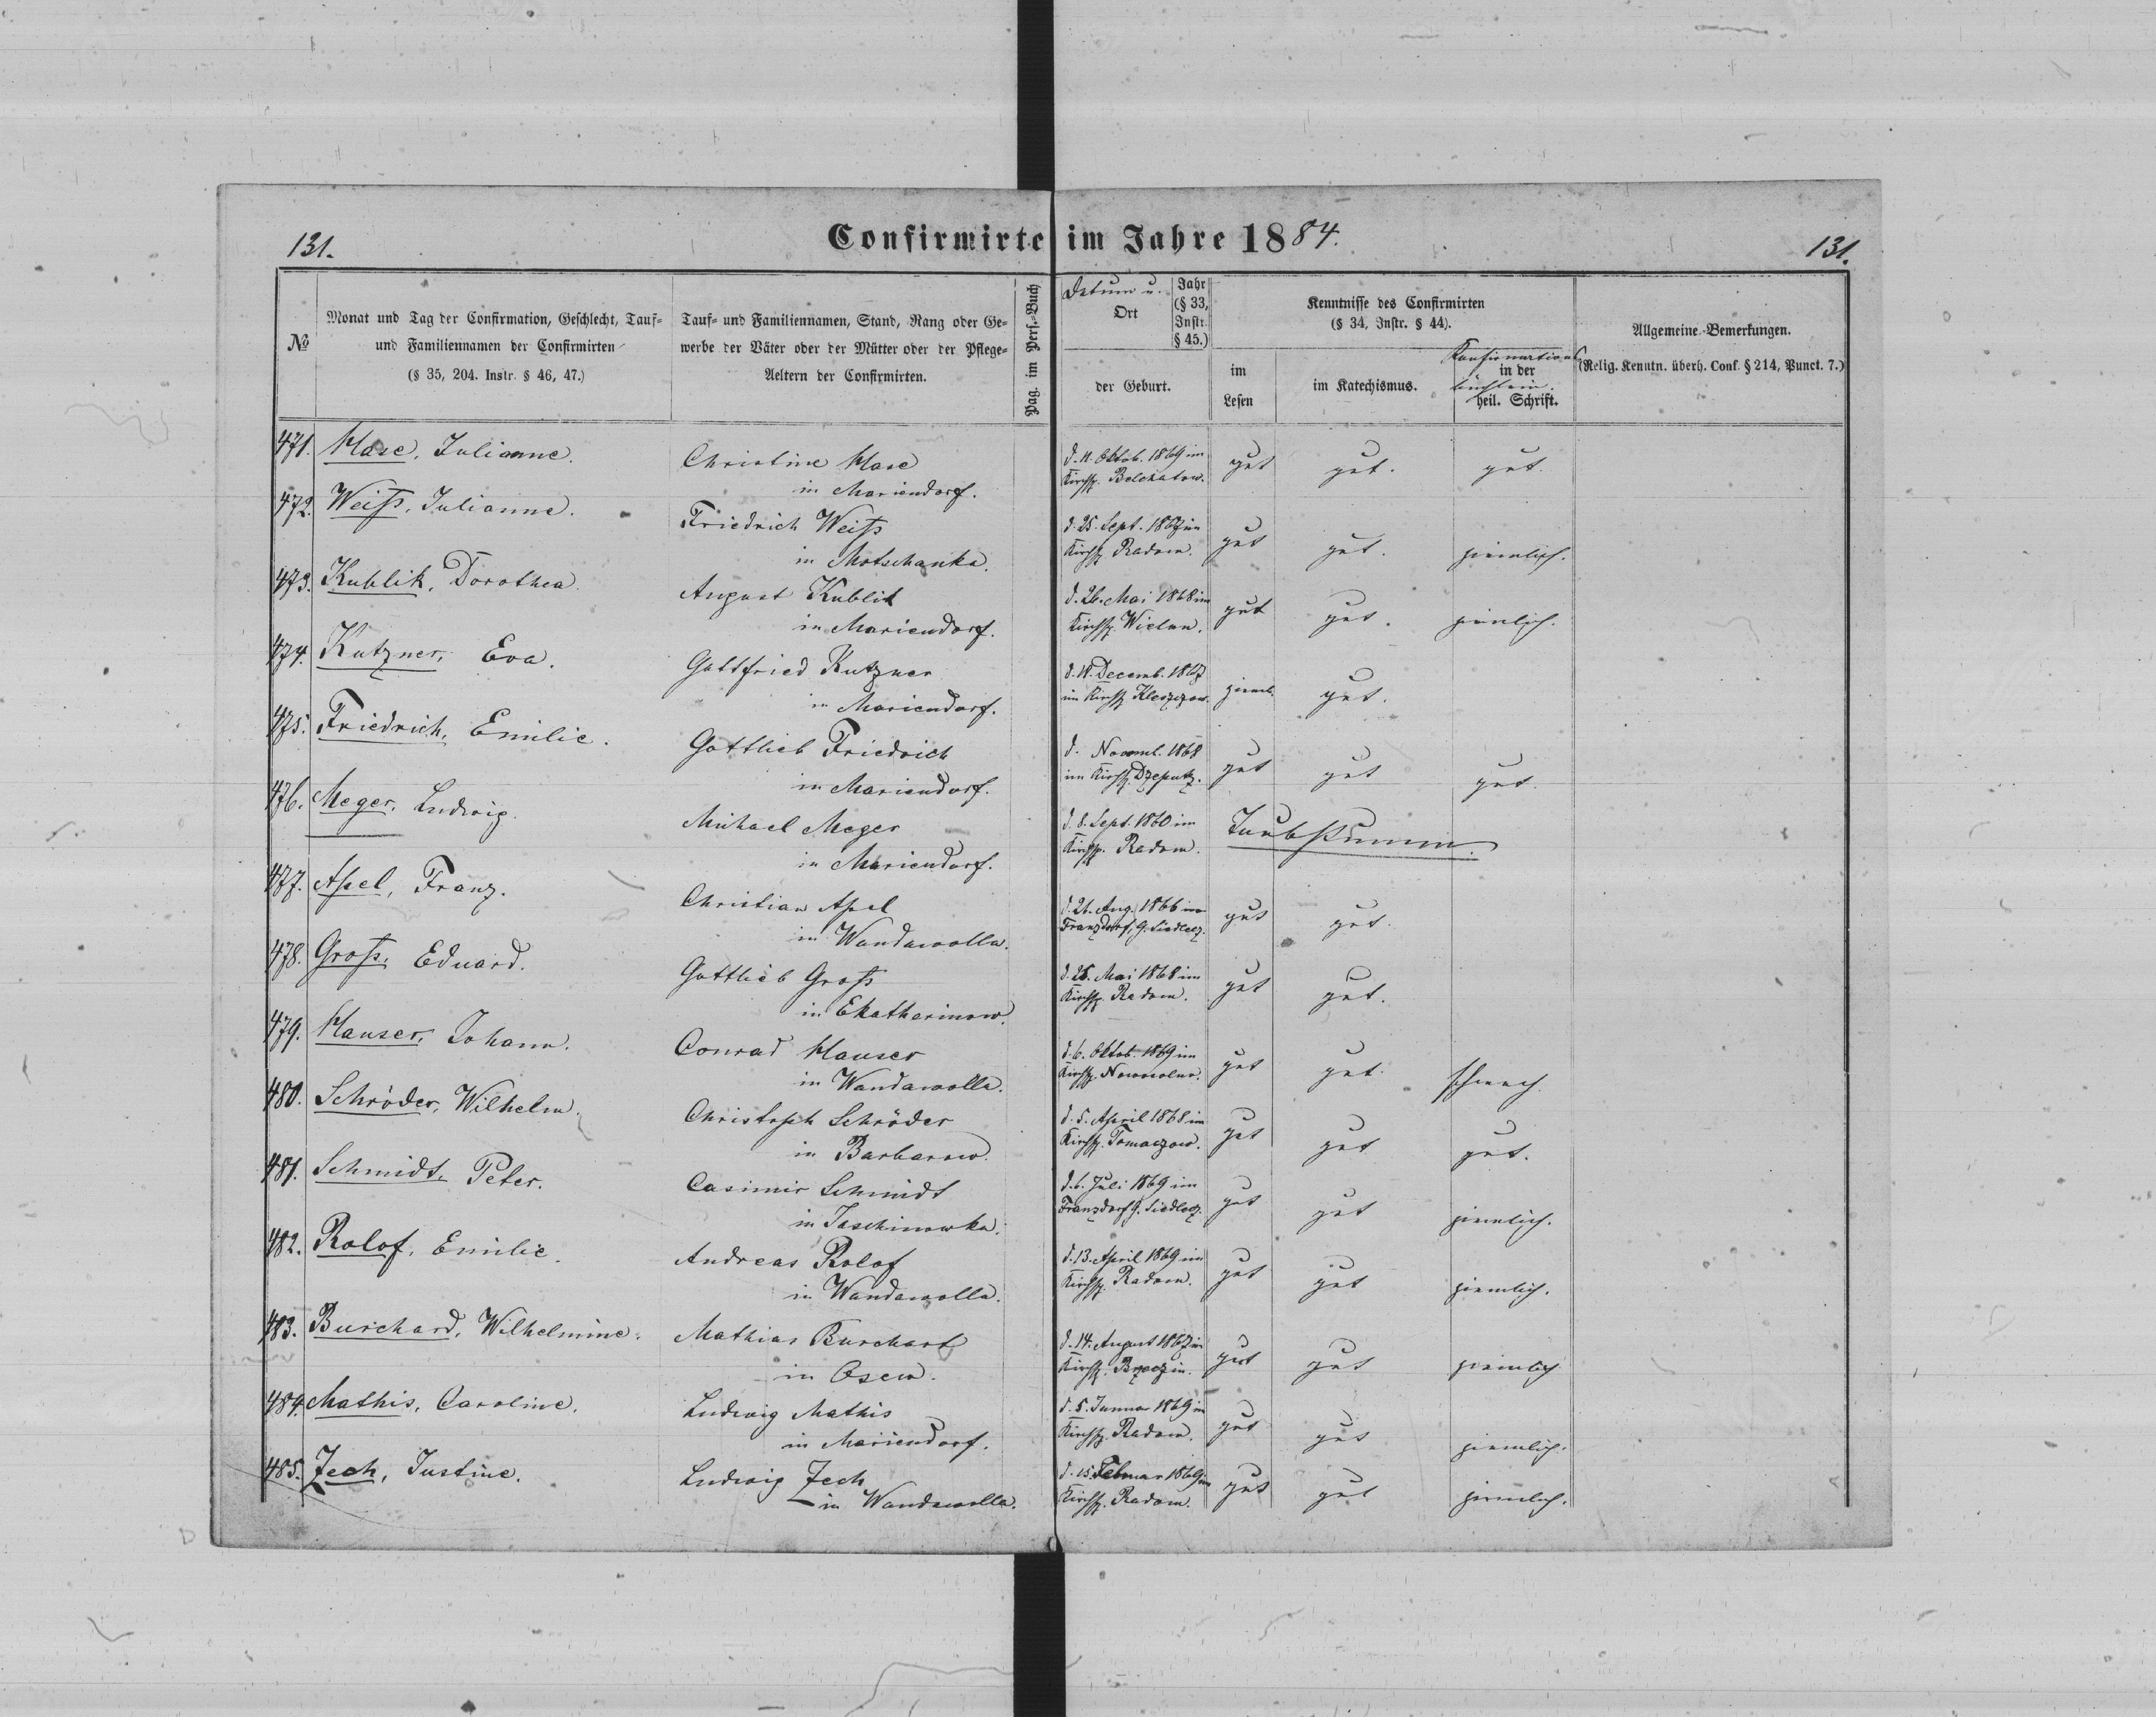 131.
Confirmirte im Jahre 1884.
131.
№
Monat und Tag der Confirmation, Geschlecht, Tauf-
und Familiennamen der Confirmirten
(§ 35, 204. Instr. § 46, 47.)
Tauf- und Familiennamen, Stand, Rang oder Ge-
werbe der Väter oder der Mütter oder der Pflege-
Aeltern der Confirmirten.
Pag. im Pers.-Buch
Datum u.
Ort
Jahr
(§ 33,
Instr.
§ 45.)
der Geburt.
Kenntnisse des Confirmirten
(§ 34, Instr. § 44).
im
Lesen
im Katechismus.
Konfirmations
in der
büchlein.
heil. Schrift.
Allgemeine Bemerkungen.
(Relig. Kenntn. überh. Conf. § 214, Punct. 7.)
471. Hase, Julianne. Christine Hase d. 11. Oktob. 1869 im gut gut. gut.
in Mariendorf. Kirchsp. Belchatow.
472. Weiß, Julianne. Friedrich Weiß d. 25. Sept. 1867 im gut gut. ziemlich.
in Motschanka. Kirchsp. Radom.
473. Kublik, Dorothea. August Kublik d. 26. Mai 1868 im gut gut. ziemlich.
in Mariendorf. Kirchsp. Wielun.
474. Kutzner, Eva. Gottfried Kutzner d. 18. Decemb. 1867 zieml. gut.
in Mariendorf. im Kirchsp. Kleszczow.
475. Friedrich, Emilie. Gottlieb Friedrich d. Novemb. 1868 gut gut gut.
in Mariendorf. im Kirchsp. Dzeputz.
476. Meger, Ludwig. Michael Meger d. 8. Sept. 1860 im Taubstumm.
in Mariendorf. Kirchsp. Radom.
477. Apel, Franz. Christian Apel d. 21. Aug. 1866 im gut gut.
in Wandawolla. Franzdorf, G. Siedlecz.
478. Groß, Eduard. Gottlieb Groß d. 25. Mai 1868 im gut gut.
in Ekatharinow. Kirchsp. Radom.
479. Hauser, Johann. Conrad Hauser d. 6. Oktob. 1869 im gut gut. schwach.
in Wandawolla. Kirchsp. Nowowolno.
480. Schröder, Wilhelm. Christoph Schröder d. 5. April 1868 im gut gut gut.
in Barbarow. Kirchsp. Tomaczow.
481. Schmidt, Peter. Casimir Schmidt d. 6. Juli 1869 im gut gut ziemlich.
in Jaschinowka. Franzdorf G. Siedlecz.
482. Rolof, Emilie. Andreas Rolof d. 13. April 1869 im gut gut ziemlich.
in Wandawolla. Kirchsp. Radom.
483. Burchard, Wilhelmine. Mathias Burchart d. 14. August 1867 im gut gut ziemlich
in Osew. Kirchsp. Brzezin.
484. Mathis, Caroline. Ludwig Mathis d. 5. Januar 1869 im gut gut ziemlich.
in Mariendorf. Kirchsp. Radom.
485. Zech, Justine. Ludwig Zech d. 15. Februar 1869 im gut gut ziemlich.
in Wandawolla. Kirchsp. Radom.